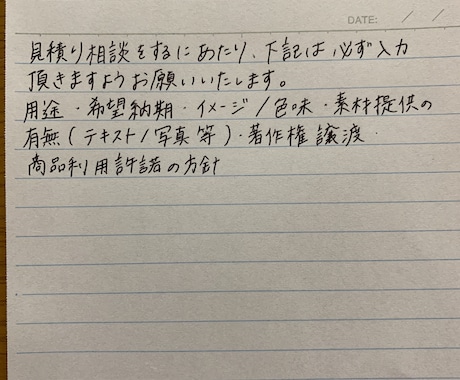 DATE: / /
見積り相談をするにあたり、下記は必ず入力
頂きますようお願いいたします。
用途・希望納期・イメージ/色味・素材提供の
有無(テキスト/写真等)・著作権譲渡・
商品利用許諾の方針